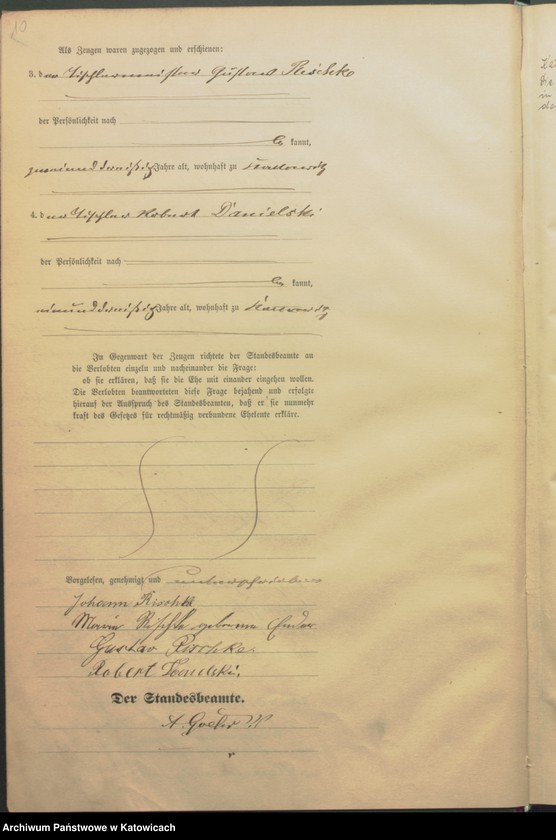 10
Als Zeugen waren zugezogen und erschienen:
3. der Tischlermeister Gustav Rischko
der Persönlichkeit nach
kannt,
zweiunddreißig Jahre alt, wohnhaft zu Kattowitz
4. der Tischler Robert Danielski
der Persönlichkeit nach
kannt,
Jahre alt, wohnhaft zu Kattowitz
In Gegenwart der Zeugen richtete der Standesbeamte an
die Verlobten einzeln und nacheinander die Frage:
ob sie erklären, daß sie die Ehe mit einander eingehen wollen.
Die Verlobten beantworteten diese Frage bejahend und erfolgte
hierauf der Ausspruch des Standesbeamten, daß er sie nunmehr
kraft des Gesetzes für rechtmäßig verbundene Eheleute erkläre.
Vorgelesen, genehmigt und unterschrieben
Johann Rischka
Maria geborene
Gustav
Robert
Der Standesbeamte.
Archiwum Państwowe w Katowicach